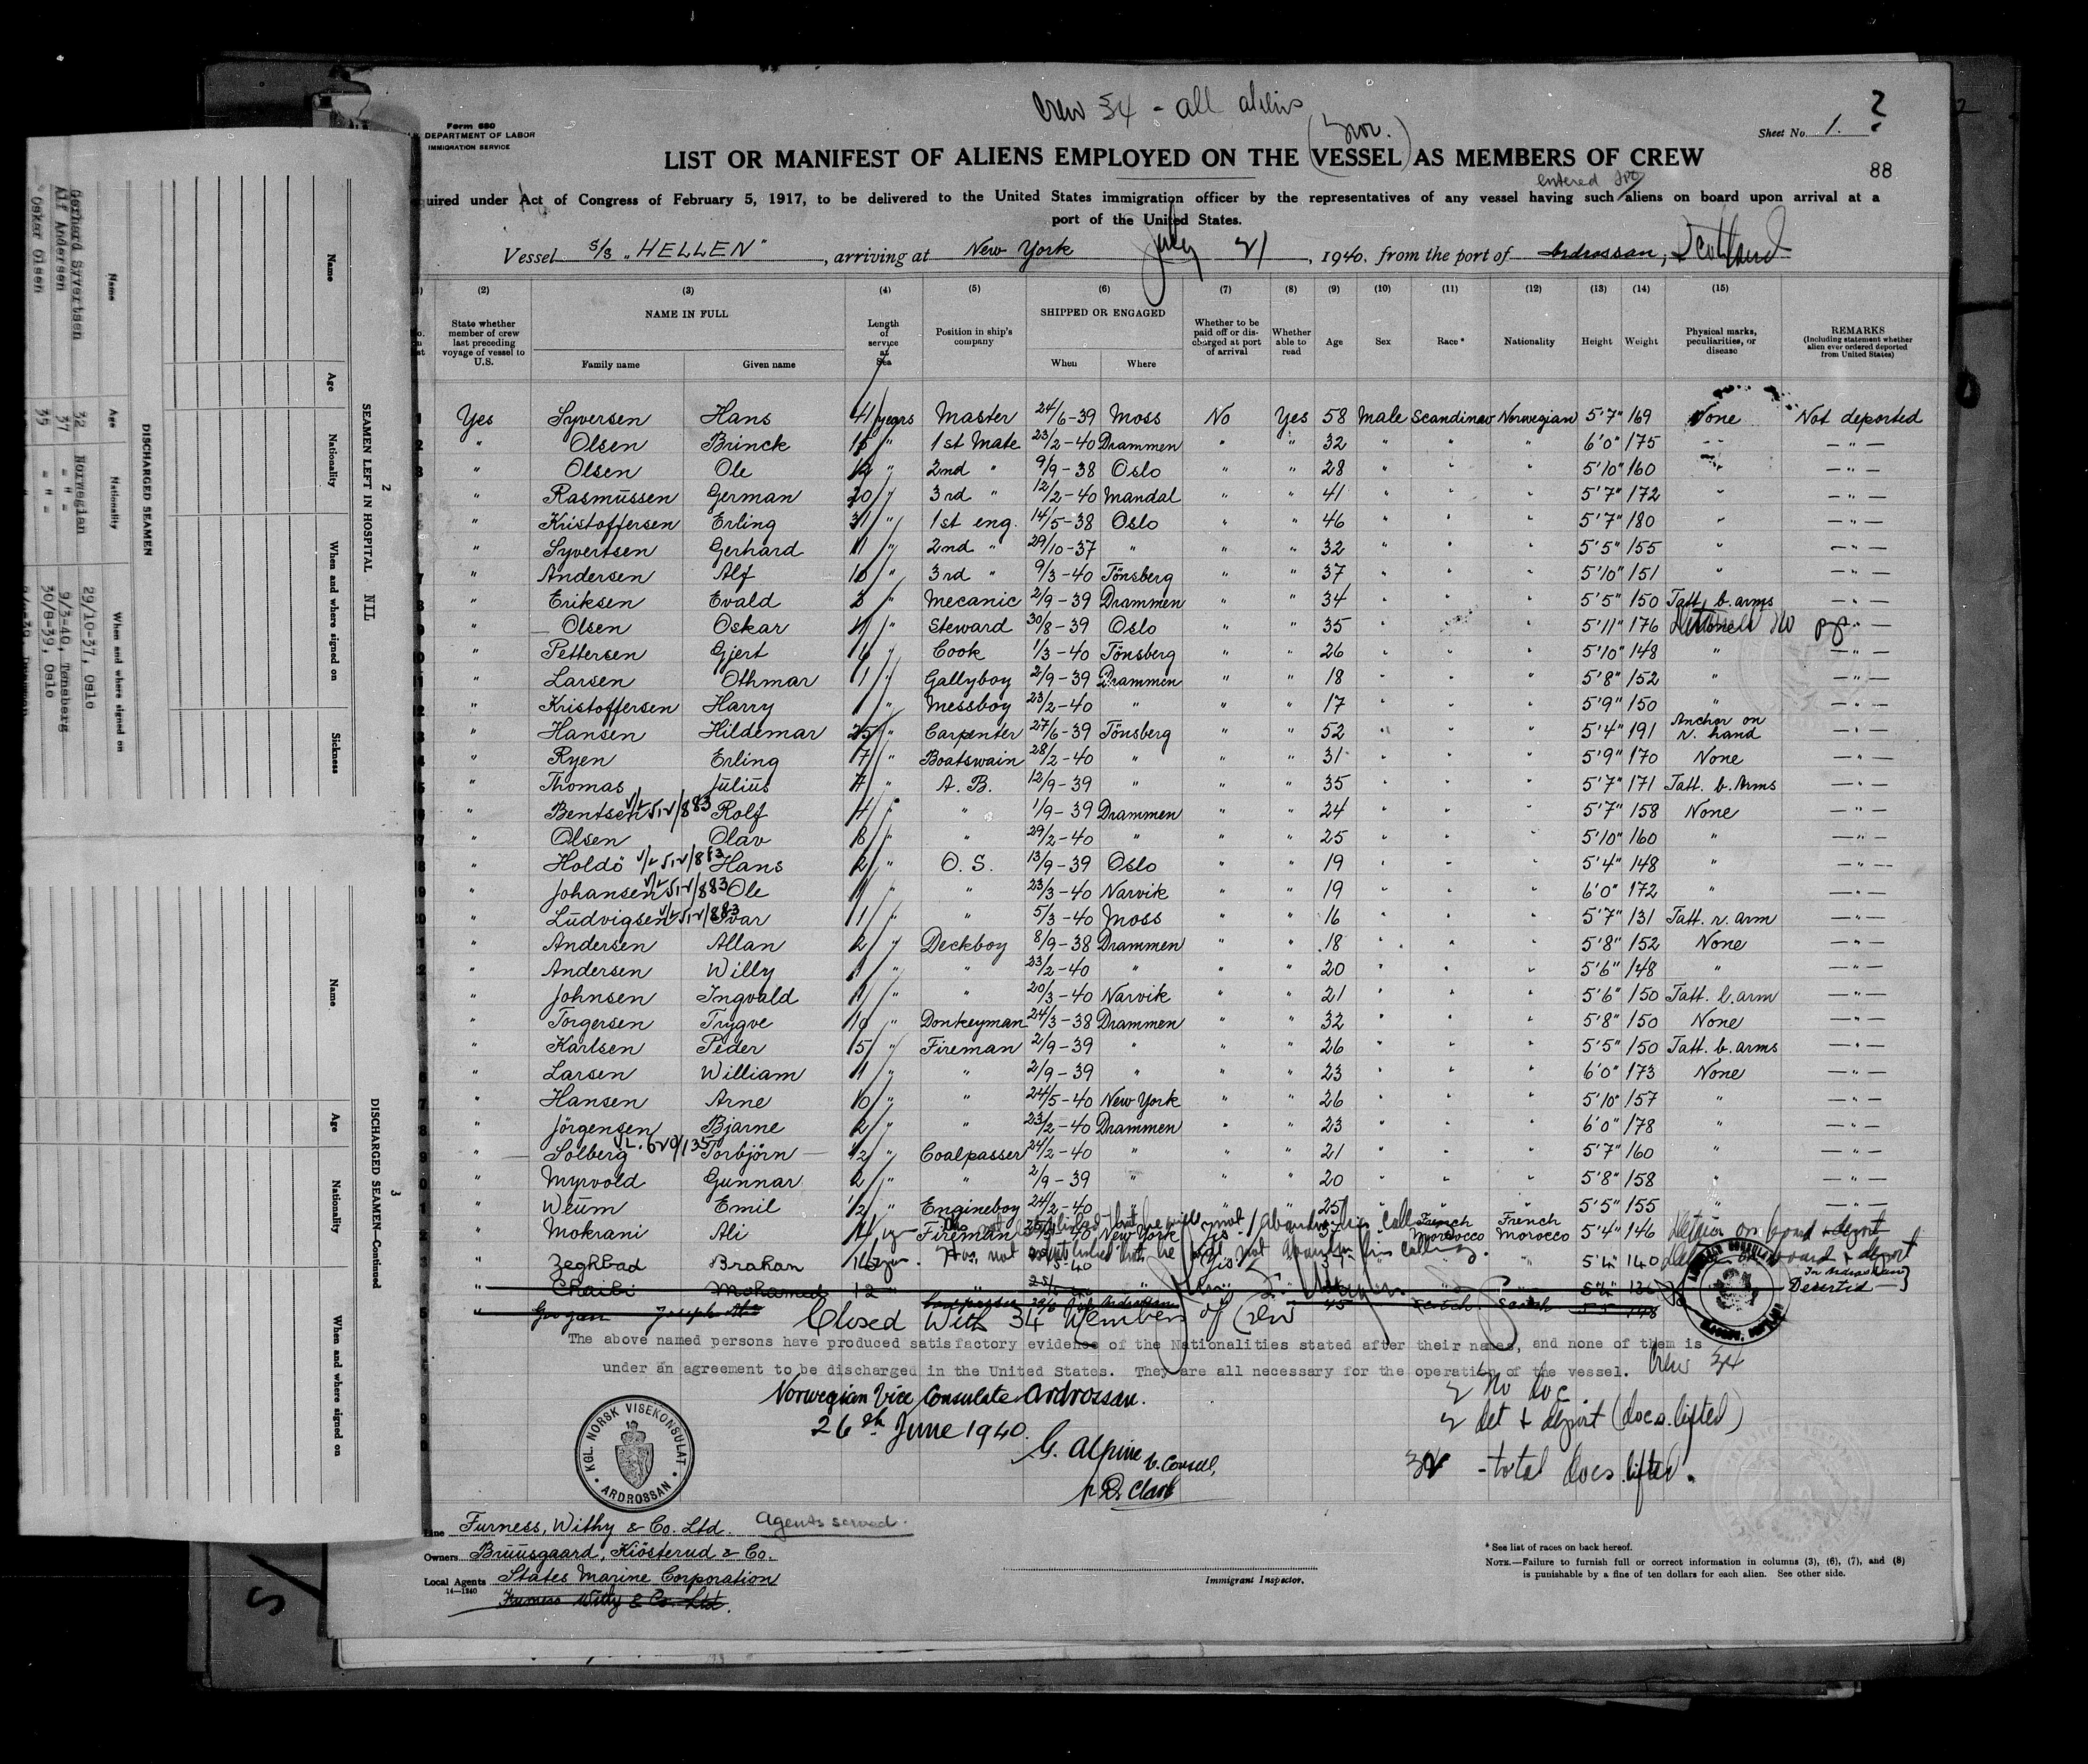 Crew 34 - all aliens
Form 680
DEPARTMENT OF LABOR
IMMIGRATION SERVICE
Sheet No. 1.
(Nor.)
LIST OR MANIFEST OF ALIENS EMPLOYED ON THE VESSEL AS MEMBERS OF CREW
88
entered
quired under Act of Congress of February 5, 1917, to be delivered to the United States immigration officer by the representatives of any vessel having such aliens on board upon arrival at a
port of the United States.
Vessel S/S "HELLEN", arriving at New York July 21, 1940. from the port of Ardrossan, Scotland
(2) (3) (4) (5) (6) (7) (8) (9) (10) (11) (12) (13) (14) (15)
State whether member of crew last preceding voyage of vessel to U.S. NAME IN FULL Family name Given name Length of service at Sea Position in ship's company SHIPPED OR ENGAGED When Where Whether to be paid off or discharged at port of arrival Whether able to read Age Sex Race* Nationality Height Weight Physical marks, peculiarities, or disease REMARKS (Including statement whether alien ever ordered deported from United States)
1 Yes Syversen Hans 41 years Master 24/6-39 Moss No Yes 58 Male Scandinav Norwegian 5'7" 169 None Not deported
2 " Olsen Brinck 15 " 1st Mate 23/2-40 Drammen " " 32 " " " 6'0" 175 -"- -"-
3 " Olsen Ole 12 " 2nd " 9/9-38 Oslo " " 28 " " " 5'10" 160 " -"-
" Rasmüssen German 20 " 3rd " 12/2-40 Mandal " " 41 " " " 5'7" 172 " -"-
" Kristoffersen Erling 31 " 1st eng. 14/5-38 Oslo " " 46 " " " 5'7" 180 " -"-
" Syvertsen Gerhard 11 " 2nd " 29/10-37 " " " 32 " " " 5'5" 155 " -"-
7 " Andersen Alf 10 " 3rd " 9/3-40 Tönsberg " " 37 " " " 5'10" 151 " -"-
8 " Eriksen Evald 3 " Mecanic 2/9-39 Drammen " " 34 " " " 5'5" 150 Tatt. b. arms -"-
9 " Olsen Oskar 11 " Steward 30/8-39 Oslo " " 35 " " " 5'11" 176 No pp -"-
0 " Pettersen Gjert 16 " Cook 1/3-40 Tönsberg " " 26 " " " 5'10" 148 " -"-
11 " Larsen Othmar 1 " Gallyboy 2/9-39 Drammen " " 18 " " " 5'8" 152 " -"-
2 " Kristoffersen Harry 1 " Messboy 23/2-40 " " " 17 " " " 5'9" 150 " -"-
3 " Hansen Hildemar 25 " Carpenter 27/6-39 Tönsberg " " 52 " " " 5'4" 191 Anchor on r. hand -"-
4 " Ryen Erling 7 " Boatswain 28/2-40 " " " 31 " " " 5'9" 170 None -"-
5 " Thomas Jülius 7 " A. B. 12/9-39 " " " 35 " " " 5'7" 171 Tatt. b. Arms -"-
" Bentsen Rolf 4 " " 1/9-39 Drammen " " 24 " " " 5'7" 158 None -"-
7 " Olsen Olav 8 " " 29/2-40 " " " 25 " " " 5'10" 160 " -"-
8 " Holdö Hans 2 " O. S. 13/9-39 Oslo " " 19 " " " 5'4" 148 " -"-
9 " Johansen Ole 1 " " 23/3-40 Narvik " " 19 " " " 6'0" 172 " -"-
0 " Lüdvigsen Ivar 1 " " 5/3-40 Moss " " 16 " " " 5'7" 131 Tatt. r. arm -"-
1 " Andersen Allan 2 " Deckboy 8/9-38 Drammen " " 18 " " " 5'8" 152 None -"-
2 " Andersen Willy 1 " " 23/2-40 " " " 20 " " " 5'6" 148 " -"-
" Johnsen Ingvald 1 " " 20/3-40 Narvik " " 21 " " " 5'6" 150 Tatt. l. arm -"-
" Torgersen Trygve 10 " Donkeyman 24/3-38 Drammen " " 32 " " " 5'8" 150 None -"-
" Karlsen Peder 5 " Fireman 2/9-39 " " " 26 " " " 5'5" 150 Tatt. b. arms -"-
6 " Larsen William 1 " " 2/9-39 " " " 23 " " " 6'0" 173 None -"-
7 " Hansen Arne 10 " " 24/5-40 New York " " 26 " " " 5'10" 157 " -"-
8 " Jörgensen Bjarne 2 " " 23/2-40 Drammen " " 23 " " " 6'0" 178 " -"-
9 " Solberg Torbjörn 1/2 " Coalpasser 24/2-40 " " " 21 " " " 5'7" 160 " -"-
0 " Myrvold Gunnar 2 " " 2/9-39 " " " 20 " " " 5'8" 158 " -"-
1 " Weüm Emil 1/2 " Engineboy 24/2-40 " " " 25 " " " 5'5" 155 " -"-
2 " Mokrani Ali Fireman New York 37 French Morocco French Morocco 5'4" 146 Detain on board & deport
3 " Zeghbad Brahan not established that he will not abandon his calling. 5'4" 140 on board & deport
" Chaibi Mohamed 12 Deserted In Ardrossan
5 " Joseph Ardrossan 45 Scotch
Closed With 34 Members of Crew
The above named persons have produced satisfactory evidence of the Nationalities stated after their names, and none of them is
under an agreement to be discharged in the United States. They are all necessary for the operation of the vessel.
Crew 34
2 No doc
2 det & deport (docs. lifted)
total docs. lifted.
Norwegian Vice Consulate Ardrossan.
26th June 1940.
G. Alpine V. Consul,
p. D. Clark
KGL. NORSK VISEKONSULAT
ARDROSSAN
Line Furness, Withy & Co. Ltd. Agents served.
Owners Brüüsgaard, Kiösterud & Co.
Local Agents States Marine Corporation
14-1240
Furness Withy & Co. Ltd.
Immigrant Inspector.
* See list of races on back hereof.
NOTE.—Failure to furnish full or correct information in columns (3), (6), (7), and (8)
is punishable by a fine of ten dollars for each alien. See other side.
2
SEAMEN LEFT IN HOSPITAL NIL
Name Age Nationality When and where signed on Sickness
DISCHARGED SEAMEN
Name Age Nationality When and where signed on
Gerhard Syvertsen 32 Norwegian 29/10-37, Oslo
Alf Andersen 37 " = 9/3-40, Tønsberg
Oskar Olsen 35 " = 30/8-39, Oslo
3
DISCHARGED SEAMEN—Continued
Name Age Nationality When and where signed on